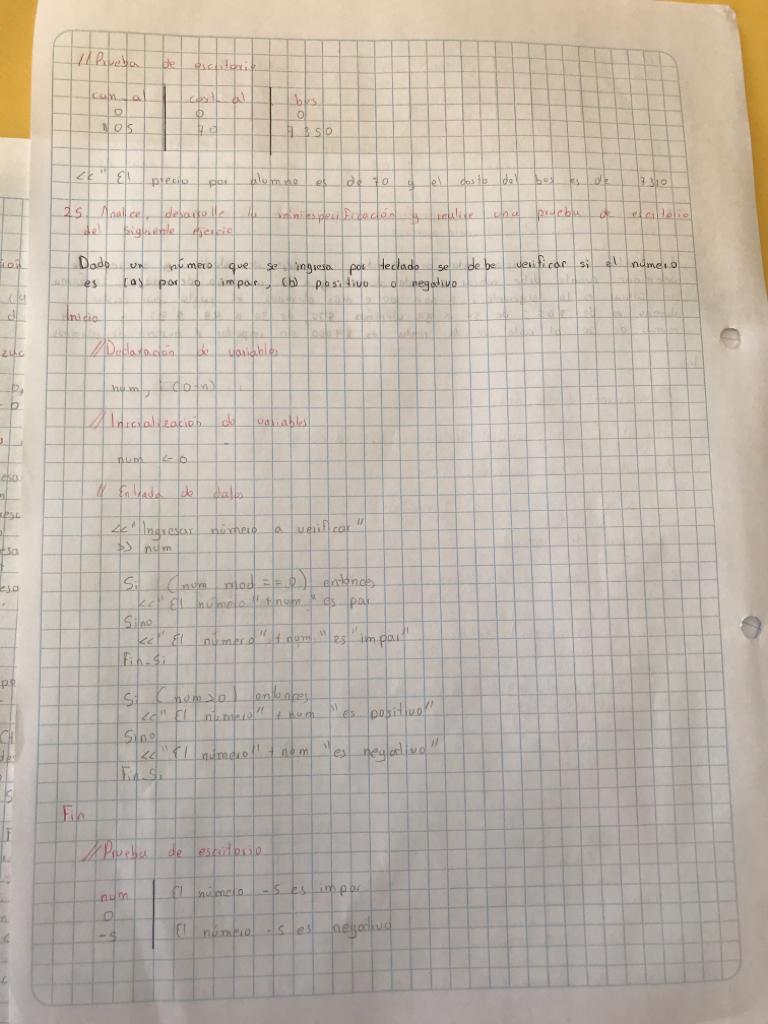 //Prueba de escritorio
can_al cost_al bus
0 0 0
105 70 7350
<<" El precio por alumno es de 70 y el costo del bus es de 7350
25. Analice, desarrolle la miniespecificación y realice una prueba de escritorio
del siguiente ejercicio
Dado un número que se ingresa por teclado se debe verificar si el número
es (a) par o impar, (b) positivo o negativo
Inicio
//Declaración de variables
num, i (0-n)
//Inicialización de variables
num <- 0
// Entrada de datos
<<"Ingresar número a verificar"
>> num
Si (num mod == 0) entonces
<<" El número" + num " es par
Sino
<<" El número" + num " es "impar"
Fin_Si
Si (num>0) entonces
<<" El número" + num "es positivo"
Sino
<<" El número" + num "es negativo"
Fin_Si
Fin
//Prueba de escritorio
num El número -5 es impar
0
-5 El número -5 es negativo